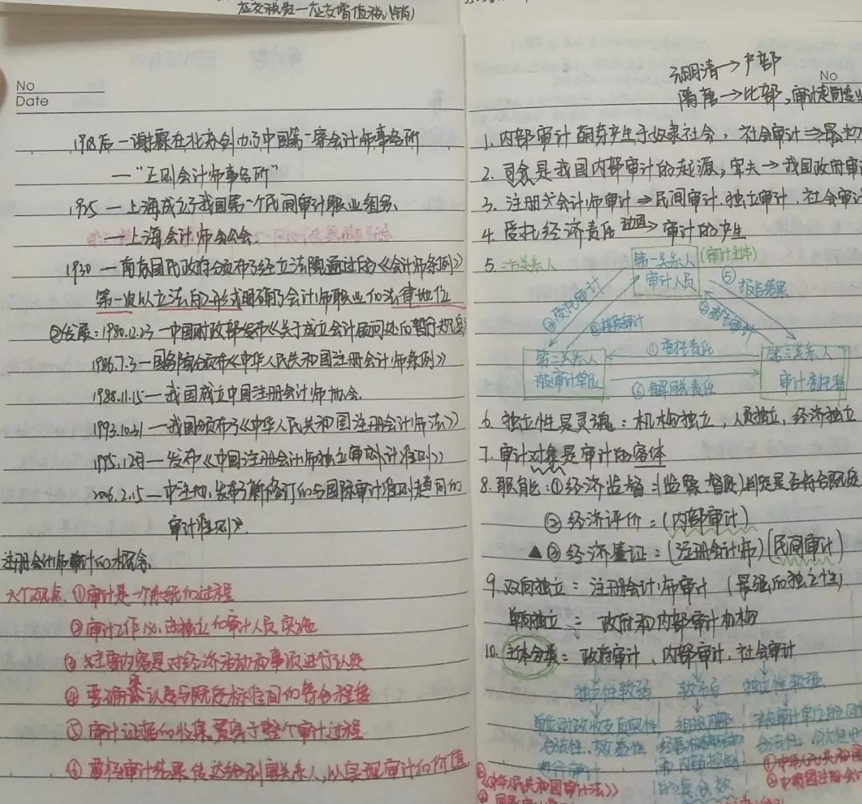 应交税费—应交增值税(销)
No
Date
1918后—谢霖在北京创办了中国第一家会计师事务所
—"正则会计师事务所"
1925—上海成立了我国第一个民间审计职业组织
—上海会计师公会
1930—南京国民政府公布了经立法院通过的《会计师条例》
第一次以立法的形式明确了会计师职业的法律地位
②发展:1980.12.23—中国财政部发布《关于成立会计顾问处的暂行规定
1986.7.3—国务院公布《中华人民共和国注册会计师条例》
1988.11.15—我国成立中国注册会计师协会.
1993.10.31—我国颁布了《中华人民共和国注册会计师法》
1995.12月—发布《中国注册会计师独立审计准则》
2006.2.15—中注协,发布了新修订的与国际审计准则趋同的
审计准则》.
注册会计师审计的概念.
六个观点.①审计是一个系统的过程
②审计工作 由独立的审计人员实施
③主要内容是对经济活动和事项进行认定
④要确定认定与既定标准之间的符合程度
⑤审计证据的收集贯穿于整个审计过程
⑥要将审计结果传达给利害关系人,以实现审计的价值
元明清→户部
No
隋唐→比部,审计
1.内部审计萌芽产生于奴隶社会,社会审计⇒最初
2.司会是我国内部审计的起源,宰夫→我国政府审
3.注册会计师审计⇒民间审计.独立审计.社会审计
4.受托经济责任→审计的产生
5.关系人
第一关系人
审计人员
(审计主体)
⑤报告结果
第二关系人
被审计单位
①委托责任
⑥解脱责任
第三关系人
审计委托者
6.独立性是灵魂:机构独立,人员独立,经济独立
7.审计对象是审计的客体
8.职能:①经济监督:(监察.督促)判定是否符合既定
②经济评价=(内部审计)
▲③经济鉴证:(注册会计师)(民间审计)
9.双向独立:注册会计师审计(最强的独立性)
单向独立:政府和内部审计机构
10.主体分类:政府审计、内部审计,社会审计
独立性较强 较弱 独立性较强
《中华人民共和国审计法》